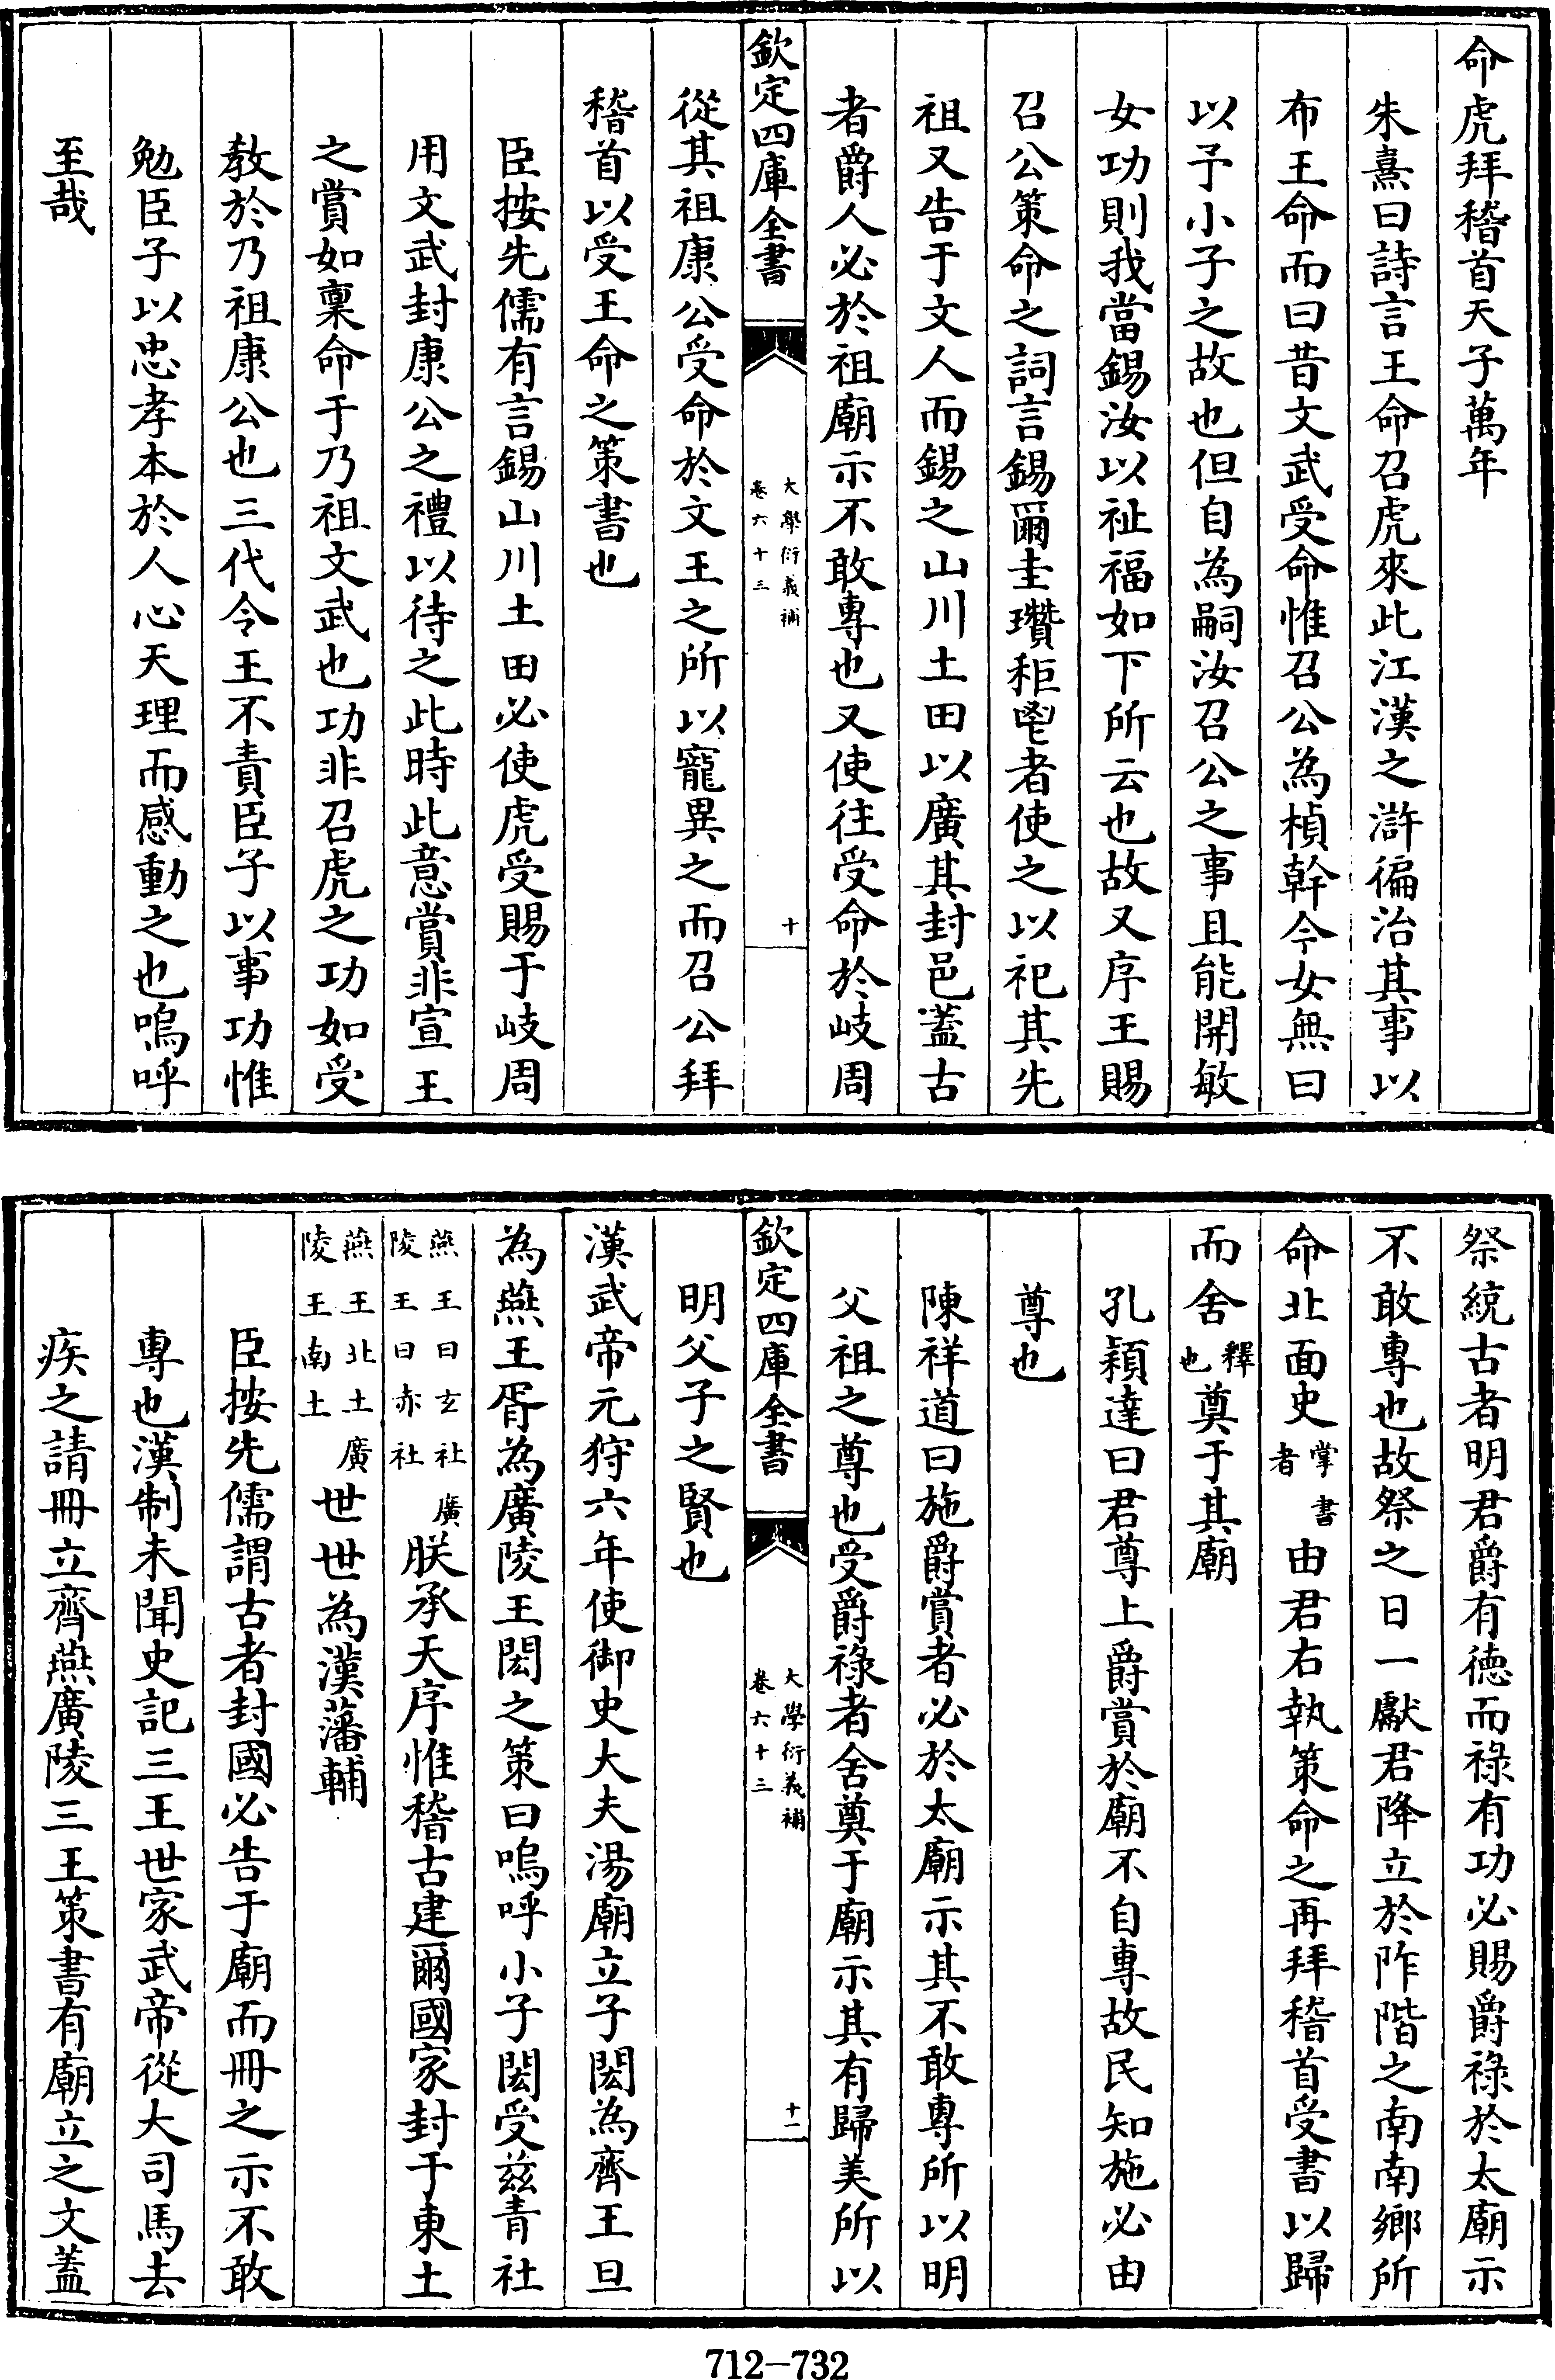 命虎拜稽首天子萬年
朱熹曰詩言王命召虎來此江漢之滸徧治其事以
布王命而曰昔文武受命惟召公為楨幹今女無曰
以予小子之故也但自為嗣汝召公之事且能開敏
女功則我當錫汝以祉福如下所云也故又序王賜
召公策命之詞言錫爾圭瓚秬鬯者使之以祀其先
祖又告于文人而錫之山川土田以廣其封邑葢古
者爵人必於祖廟示不敢專也又使往受命於岐周
欽定四庫全書
大學衍義補
卷六十三
十
從其祖康公受命於文王之所以寵異之而召公拜
稽首以受王命之策書也
臣按先儒有言錫山川土田必使虎受賜于岐周
用文武封康公之禮以待之此時此意賞非宣王
之賞如稟命于乃祖文武也功非召虎之功如受
教於乃祖康公也三代令王不責臣子以事功惟
勉臣子以忠孝本於人心天理而感動之也嗚呼
至哉
祭統古者明君爵有德而祿有功必賜爵祿於太廟示
不敢專也故祭之日一獻君降立於阼階之南南鄉所
命北面史掌書者由君右執策命之再拜稽首受書以歸
而舍釋也奠于其廟
孔穎達曰君尊上爵賞於廟不自專故民知施必由
尊也
陳祥道曰施爵賞者必於太廟示其不敢專所以明
父祖之尊也受爵祿者舍奠于廟示其有歸美所以
欽定四庫全書
大學衍義補
卷六十三
十一
明父子之賢也
漢武帝元狩六年使御史大夫湯廟立子閎為齊王旦
為燕王胥為廣陵王閎之策曰嗚呼小子閎受兹青社
燕王曰玄社廣陵王曰赤社朕承天序惟稽古建爾國家封于東土
燕王北土廣陵王南土世世為漢藩輔
臣按先儒謂古者封國必告于廟而冊之示不敢
專也漢制未聞史記三王世家武帝從大司馬去
疾之請冊立齊燕廣陵三王策書有廟立之文蓋
712-732